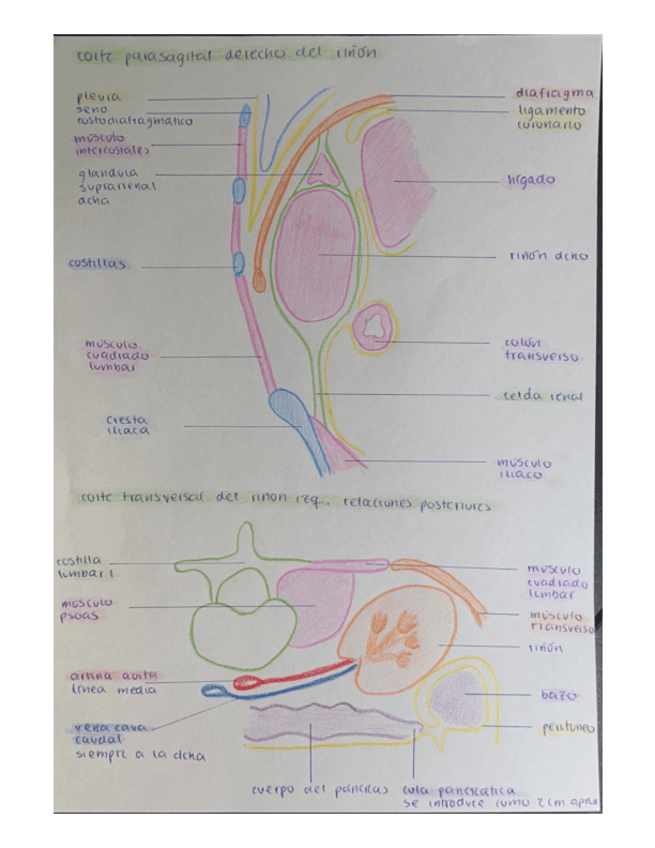 corte parasagital derecho del riñón
pleura
seno
custodiafragmático
músculo
intercostales
glándula
suprarrenal
dcha
costillas
músculo
cuadrado
lumbar
cresta
iliaca
diafragma
ligamento
coronario
hígado
riñón dcho
colón
transverso
celda renal
músculo
iliaco
corte transversal del riñon izq. relaciones posteriores
costilla
lumbar 1
músculo
psoas
línea media
vena cava
caudal
siempre a la dcha
músculo
cuadrado
lumbar
músculo
transverso
riñón
bazo
peritoneo
cuerpo del páncreas
cola pancreática
se introduce como 2 cm aprox